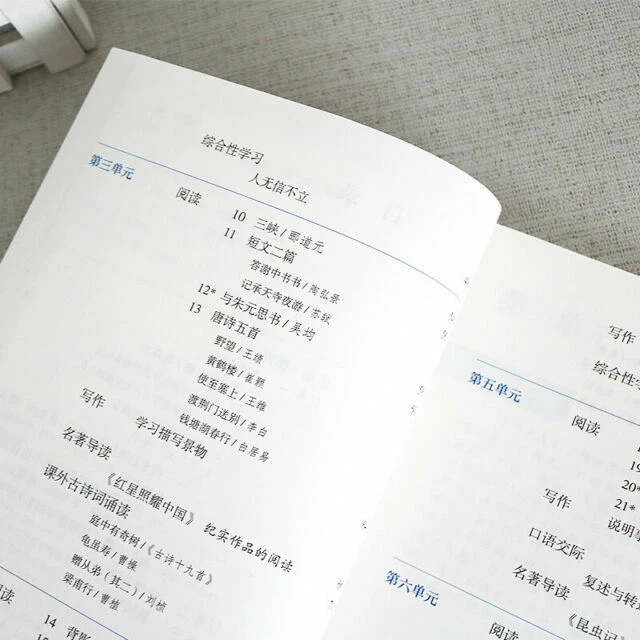 综合性学习
人无信不立
第三单元
阅读
10 三峡/郦道元
11 短文二篇
答谢中书书/陶弘景
记承天寺夜游/苏轼
12* 与朱元思书/吴均
13 唐诗五首
野望/王绩
黄鹤楼/崔颢
使至塞上/王维
渡荆门送别/李白
钱塘湖春行/白居易
写作
学习描写景物
名著导读
《红星照耀中国》 纪实作品的阅读
课外古诗词诵读
庭中有奇树/《古诗十九首》
龟虽寿/曹操
赠从弟（其二）/刘桢
梁甫行/曹植
14 背影
写作
综合性
第五单元
阅读
19
20*
21*
写作
说明
口语交际
复述与转
名著导读
《昆虫记
第六单元